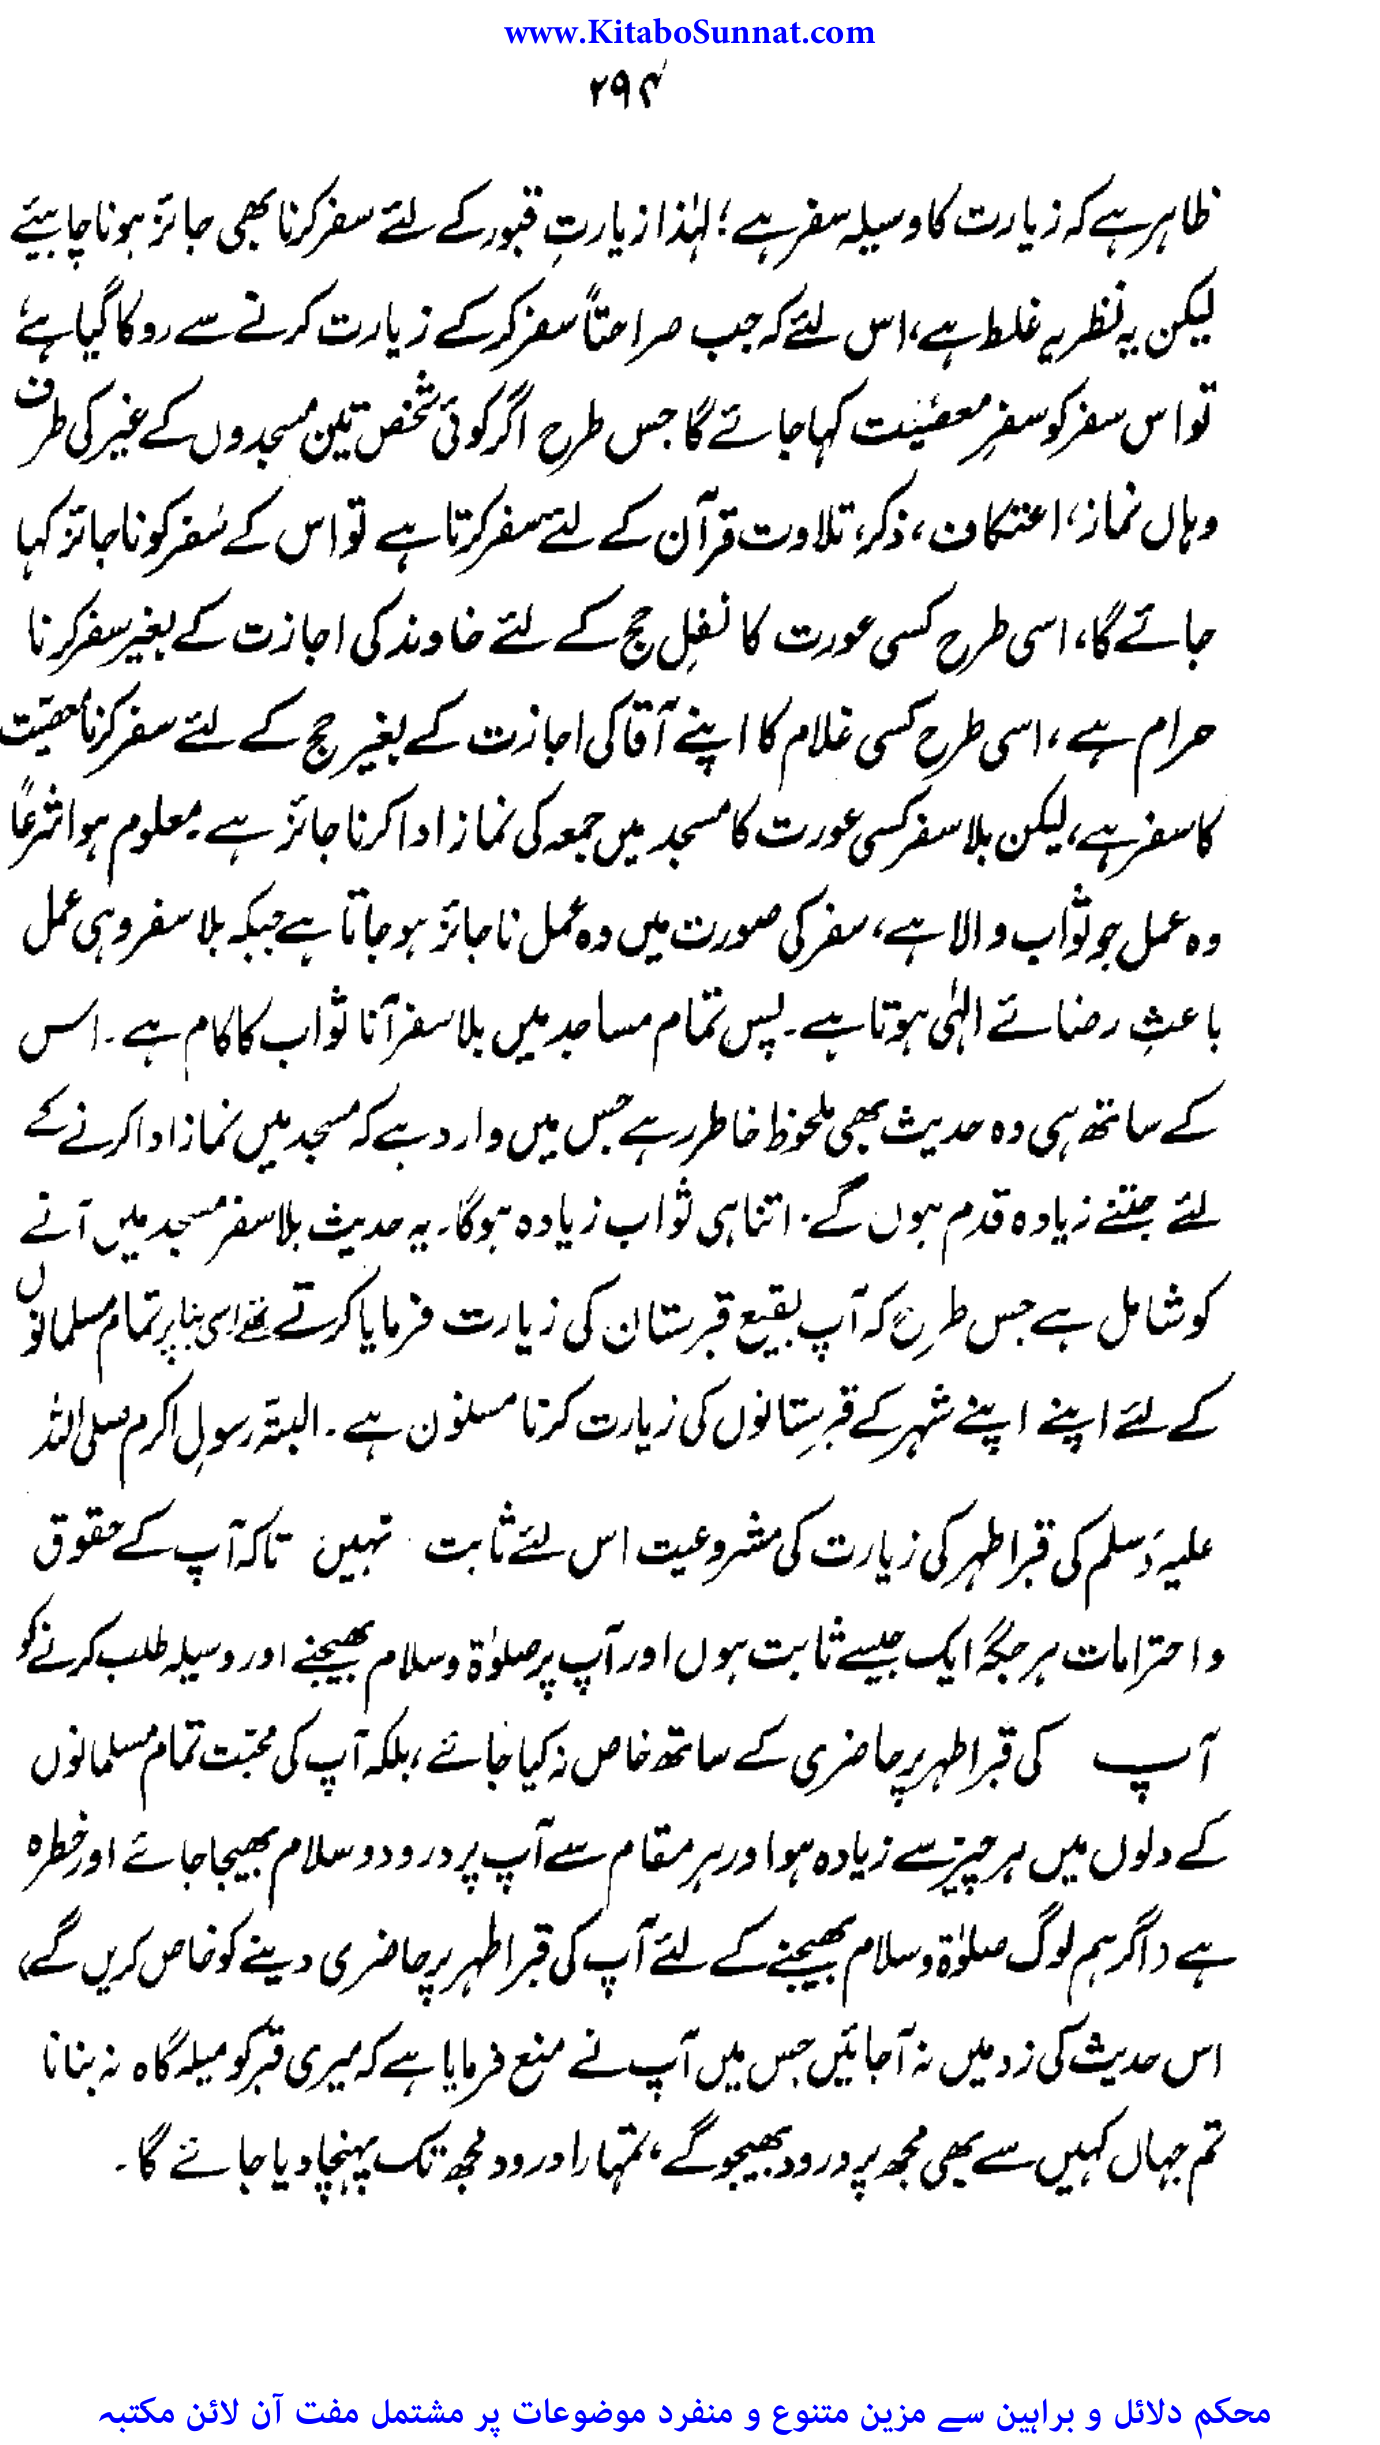 www.KitaboSunnat.com
۲۹۴
ظاہر ہے کہ زیارت کا وسیلہ سفر ہے؛ لہٰذا زیارتِ قبور کے لئے سفر کرنا بھی جائز ہونا چاہیئے
لیکن یہ نظریہ غلط ہے، اس لئے کہ جب صراحتاً سفر کرکے زیارت کرنے سے روکا گیا ہے
تو اس سفر کو سفرِ معصیّت کہا جائے گا جس طرح اگر کوئی شخص تین مسجدوں کے غیر کی طرف
وہاں نماز، اعتکاف، ذکر، تلاوت قرآن کے لئے سفر کرتا ہے تو اس کے سفر کو ناجائز کہا
جائے گا، اسی طرح کسی عورت کا نفلِ حج کے لئے خاوند کی اجازت کے بغیر سفر کرنا
حرام ہے، اسی طرح کسی غلام کا اپنے آقا کی اجازت کے بغیر حج کے لئے سفر کرنا معصیّت
کا سفر ہے، لیکن بلا سفر کسی عورت کا مسجد میں جمعہ کی نماز ادا کرنا جائز ہے۔ معلوم ہوا شرعاً
وہ عمل جو ثواب والا ہے، سفر کی صورت میں وہ عمل ناجائز ہو جاتا ہے جبکہ بلا سفر وہی عمل
باعثِ رضائے الٰہی ہوتا ہے۔ پس تمام مساجد میں بلا سفر آنا ثواب کا کام ہے۔ اس
کے ساتھ ہی وہ حدیث بھی ملحوظ خاطر رہے جس میں وارد ہے کہ مسجد میں نماز ادا کرنے کے
لئے جتنے زیادہ قدم ہوں گے۔ اتنا ہی ثواب زیادہ ہوگا۔ یہ حدیث بلا سفر مسجد میں آنے
کو شامل ہے جس طرح کہ آپ بقیع قبرستان کی زیارت فرمایا کرتے تھے اسی بنا پر تمام مسلمانوں
کے لئے اپنے اپنے شہر کے قبرستانوں کی زیارت کرنا مسنون ہے۔ البتہّ رسولِ اکرم صلی اللہ
علیہ وَسلم کی قبر اطہر کی زیارت کی مشروعیت اس لئے ثابت نہیں تاکہ آپ کے حقوق
و احترامات ہر جگہ ایک جیسے ثابت ہوں اور آپ پر صلوٰۃ وسلام بھیجنے اور وسیلہ طلب کرنے کو
آپ کی قبر اطہر پر حاضری کے ساتھ خاص نہ کیا جائے، بلکہ آپ کی محبّت تمام مسلمانوں
کے دلوں میں ہر چیز سے زیادہ ہو اور ہر مقام سے آپ پر درود و سلام بھیجا جائے اور خطرہ
ہے (اگر ہم لوگ صلوٰۃ وسلام بھیجنے کے لئے آپ کی قبر اطہر پر حاضری دینے کو خاص کریں گے)
اس حدیث کی زد میں نہ آجائیں جس میں آپ نے منع فرمایا ہے کہ میری قبر کو میلہ گاہ نہ بنانا
تم جہاں کہیں سے بھی مجھ پر درود بھیجو گے، تمہارا درود مجھ تک پہنچا دیا جائے گا۔
محکم دلائل و براہین سے مزین متنوع و منفرد موضوعات پر مشتمل مفت آن لائن مکتبہ